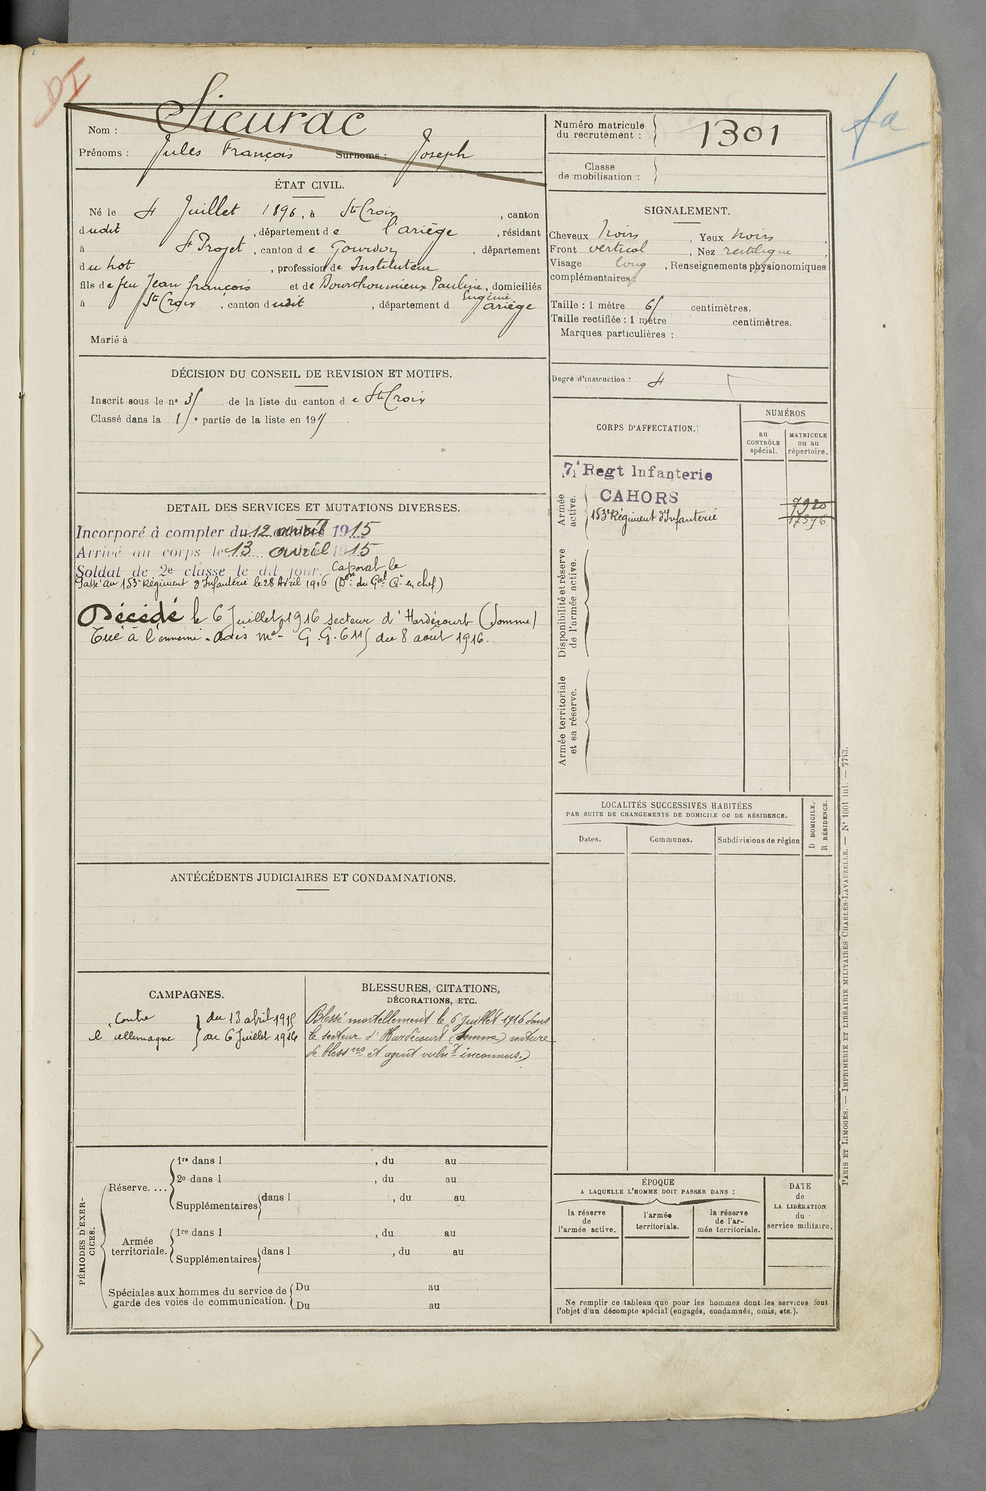 Nom : Sieurac
Prénoms : Jules François Surnoms : Joseph
Numéro matricule
du recrutement : 1301
Classe
de mobilisation :
ÉTAT CIVIL.
Né le 4 Juillet 1896, à Ste Croix, canton
dudit, département de l'ariège, résidant
à St Projet, canton de Gourdon, département
du Lot, profession de Instituteur
fils de feu Jean françois et de Bourthoumieux Pauline, domiciliés
Eugénie
à Ste Croix, canton dudit, département d ariège
Marié à
SIGNALEMENT.
Cheveux noirs, Yeux noirs,
Front vertical, Nez rectiligne,
Visage long, Renseignements physionomiques
complémentaires :
Taille : 1 mètre 61 centimètres.
Taille rectifiée : 1 mètre centimètres.
Marques particulières :
Degré d'instruction : 4
DÉCISION DU CONSEIL DE REVISION ET MOTIFS.
Inscrit sous le no 35 de la liste du canton de Ste Croix
Classé dans la 1re partie de la liste en 1915
CORPS D'AFFECTATION.
NUMÉROS
au
CONTRÔLE
spécial.
MATRICULE
ou au
répertoire.
Armée
active.
7e Regt Infanterie
CAHORS
7920
153e Régiment d'Infanterie 17596
Disponibilité et réserve
de l'armée active.
Armée territoriale
et sa réserve.
DETAIL DES SERVICES ET MUTATIONS DIVERSES.
Incorporé à compter du 12 avril 1915
Arrivé au corps le 13 avril 1915
Soldat de 2e classe le dit jour. Caporal le
Passé au 153e Régiment d'Infanterie le 28 Avril 1916 (Don du Gal Ct en chef)
Décédé le 6 Juillet 1916 secteur d'Hardécourt (Somme)
Tué à l'ennemi. Avis mel G.G. 6115 du 8 aout 1916.
LOCALITÉS SUCCESSIVES HABITÉES
PAR SUITE DE CHANGEMENTS DE DOMICILE OU DE RÉSIDENCE.
Dates.
Communes.
Subdivisions de région
D DOMICILE.
R RÉSIDENCE.
ANTÉCÉDENTS JUDICIAIRES ET CONDAMNATIONS.
CAMPAGNES.
Contre } du 13 abril 1915
l'allemagne } au 6 Juillet 1916
BLESSURES, CITATIONS,
DÉCORATIONS, ETC.
Blessé mortellement le 6 Juillet 1916 dans
le secteur d'Hardécourt (Somme) nature
de blessres et agent vulnt inconnus.
PÉRIODES D'EXER-
CICES.
Réserve....
1re dans l , du au
2e dans l , du au
Supplémentaires dans l , du au
Armée
territoriale.
1re dans l , du au
Supplémentaires dans l , du au
Spéciales aux hommes du service de
garde des voies de communication.
Du au
Du au
ÉPOQUE
A LAQUELLE L'HOMME DOIT PASSER DANS :
la réserve
de
l'armée active.
l'armée
territoriale.
la réserve
de l'ar-
mée territoriale.
DATE
de
LA LIBÉRATION
du
service militaire.
Ne remplir ce tableau que pour les hommes dont les services font
l'objet d'un décompte spécial (engagés, condamnés, omis, etc.).
PARIS ET LIMOGES. — IMPRIMERIE ET LIBRAIRIE MILITAIRES CHARLES-LAVAUZELLE. — No 1001 int. — 7743.